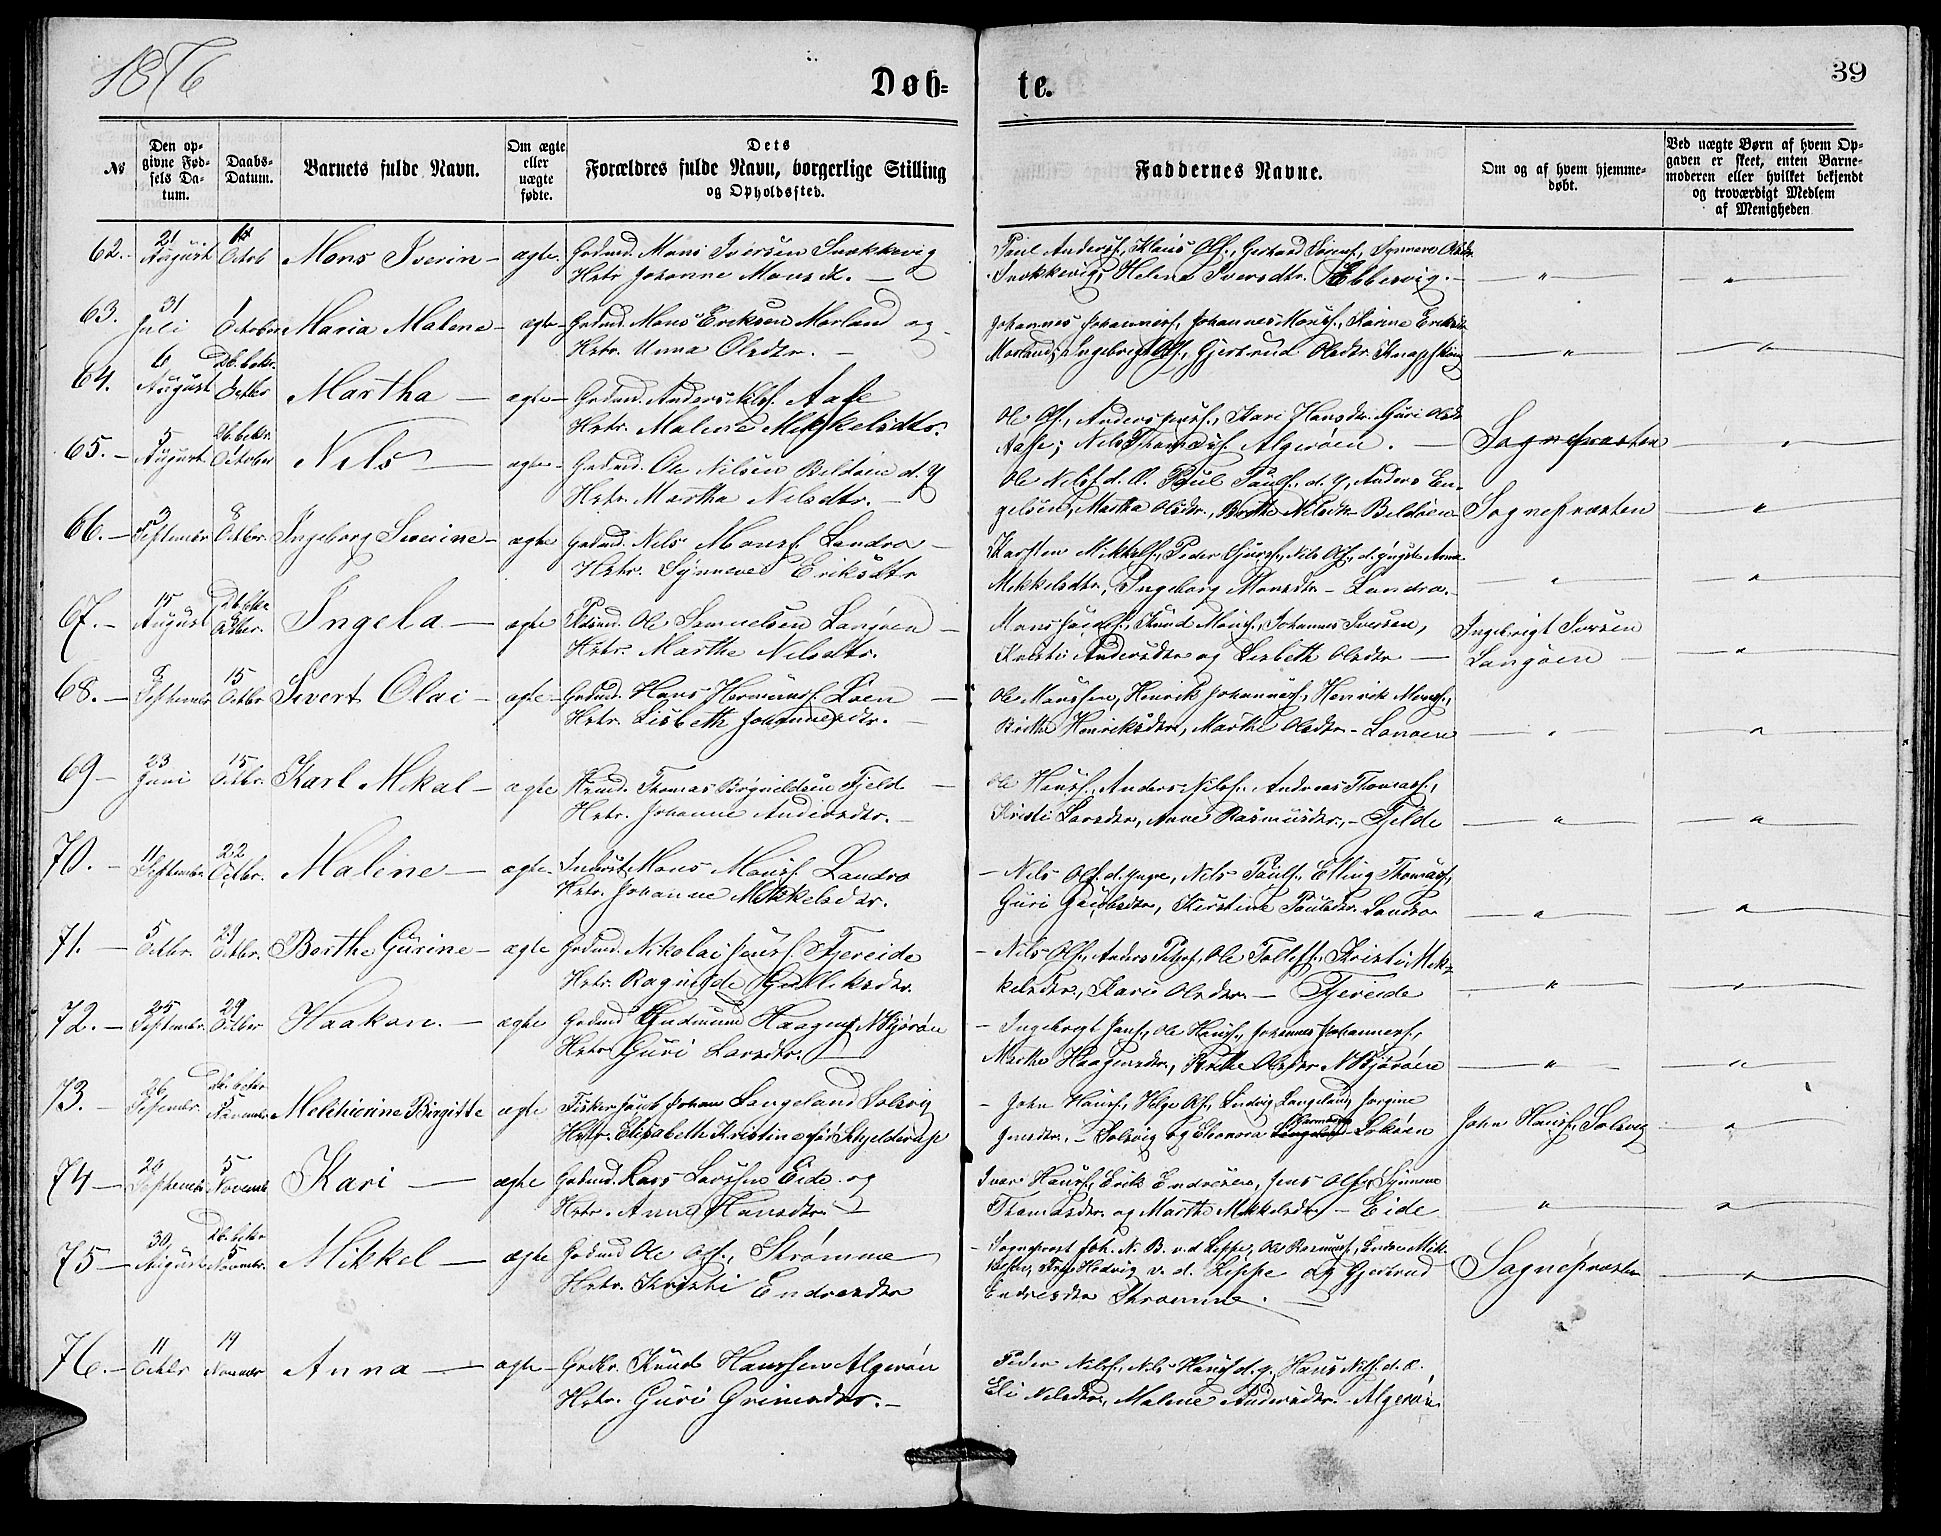 1876
Døb=
te.
39
No
Den op-
givne Fød-
sels Da-
tum.
Daabs-
Datum.
Barnets fulde Navn.
Om ægte
eller
uægte
fødte.
Dets
Forældres fulde Navn, borgerlige Stilling
og Opholdssted.
Faddernes Navne.
Om og af hvem hjemme-
døbt.
Ved uægte Børn af hvem Op-
gaven er skeet, enten Barne-
moderen eller hvilket bekjendt
og troværdigt Medlem
af Menigheden
62. 21 August 1 Octob Mons Iverin - ægte Gndmd. Mons Iversen Snekkevig
Hstr Johanne Monsd. -
Paul Andersf., Klaus Olf., Gerhard, Synneve Olsdtr
Snekkevig, Helene Iversdtr. Ebbesvig. -
63. 31 Juli 1 October Maria Malene - ægte - Gndmd. Mons Eriksen Morland og
Hstr. Unna Olsdtr. -
Johannes Johannesf., Johannes Monsf., Karine Eriksd
Morland, Ingebrigt Olf., Gjertrud Olsdtr.
64. 6 August Octbr Martha - ægte - Gndmd. Anders Nilsf. Aase
Hstr. Malene Mikkelsdtr.
Ole Olf., Anders, Kari Hansdtr. Guri Olsdtr
Aase; Nils Thomasf. Algerøen. - Sognepræsten
65. - 5 August October Nils - ægte - Gndmd. Ole Nilsen Bildøen d. Y
Hstr. Martha Nilsdtr. -
Ole Nilsf d. Æ. Paul Paulf. d. Y, Anders En-
gelsen, Martha Olsdtr., Berthe Nilsdtr Bildøen Sognepræsten
66. - 3 Septembr 8 Octbr. Ingeborg Severine - ægte Gndmd. Nils Monsf. Landro -
Hstr. Synneve Eriksdtr
Karsten Mikkelf., Peder Sjursf., Nils Olf., d. yngste Anna
Mikkelsdtr., Ingeborg Monsdtr - Landro. -
67. - 15 August Octbr. Ingela - ægte Ole Samuelsen Langøen -
Hstr. Marthe Nilsdtr.
Mons, Knud Monsf., Johannes Iversen,
Kristi Andersdtr og Lisbeth Olsdtr - Ingebrigt Iversen
Langøen
68. - Septembr 15 Octbr Sivert Olai - ægte - Gndmd. Hans Hermansf. Løen -
Hstr. Lisbeth Johannesdtr. -
Ole Monssen, Henrik Johannesf., Henrik Monsf.,
Brithe Henriksdtr, Marthe Olsdtr -
69 - 23 Juni 15 Octbr. Karl Mikal - ægte Thomas Fjeld -
Hstr. Johanne Andersdtr. -
Ole Hansf., Anders Nilsf., Andreas Thomasf.,
Kristi Larsdtr, Anne Rasmusdtr, - Fjelde
70. - 11 Septembr 22 Octbr. Malene - ægte - Inderst Mons Monsf. Landro
Hstr. Johanne Mikkelsdtr.
- Nils Olf. d. yngre, Nils Paulf. Elling Thomasf,
Guri, Kirstine Paulsdtr Landro
71. - 5 Octbr. 29 Octbr. Berthe Gurine - ægte Gndmd. Nikolai Jensf. Fjereide
Hstr. Ragnilde
- Nils Olf., Anders, Ole, Kristi Mik-
kelsdtr, Kari Olsdtr. - Fjereide
72. - 25 Septembr. 29 Octbr Haakon. - ægte Gndmd Gudmund Haagensf N Bjørøn
Hstr Guri Larsdtr, -
- Ingebrigt Jensf, Ole Hansf., Johannes Johannesf.,
Marthe Haagensdtr, Olsdtr N Bjørøen
73. - 26 Novembr. Melchiorine Birgitte ægte Fisker Jacob Johan Langeland Solsvig
Hstr. Elisabeth Kristine født Schjelderup
- John Hansf., Helge Olf., Ludvig Langeland, Jorgine
Jensdtr, - Solsvig og Eleonora - John Hansf. Solsvig
74 - 20 Septembr 5 Novemb Kari - ægte Gndmd. Lars Larssen Eide og
Hstr. Anna Hansdtr. -
Ivar Hansf., Erik Endresen, Jens Olf., Synneve
Thomasdtr. og Marthe Mikkelsdtr - Eide
75 - 30 August 5 Novembr. Mikkel - ægte Gndmd Ole Olf. Strømme
Hstr. Kristi Endresdtr
- Sognepræst Joh. N. B. v. d. Lippe, Ole Rasmusf., Endre Mik-
kelsen, Hedvig v. d. Lippe og Gjertrud
Endresdtr Strømme. - Sognepræsten
76. - 11 Octbr 19 Novembr Anna - ægte - Knud Hanssen Algerøen
Hstr. Guri Grimsdtr. -
Peder Nilsf., Nils Hansf. d. y., Hans Nilsf. d. æ.
Eli Nilsdtr, Malene Andersdtr. - Algerøn